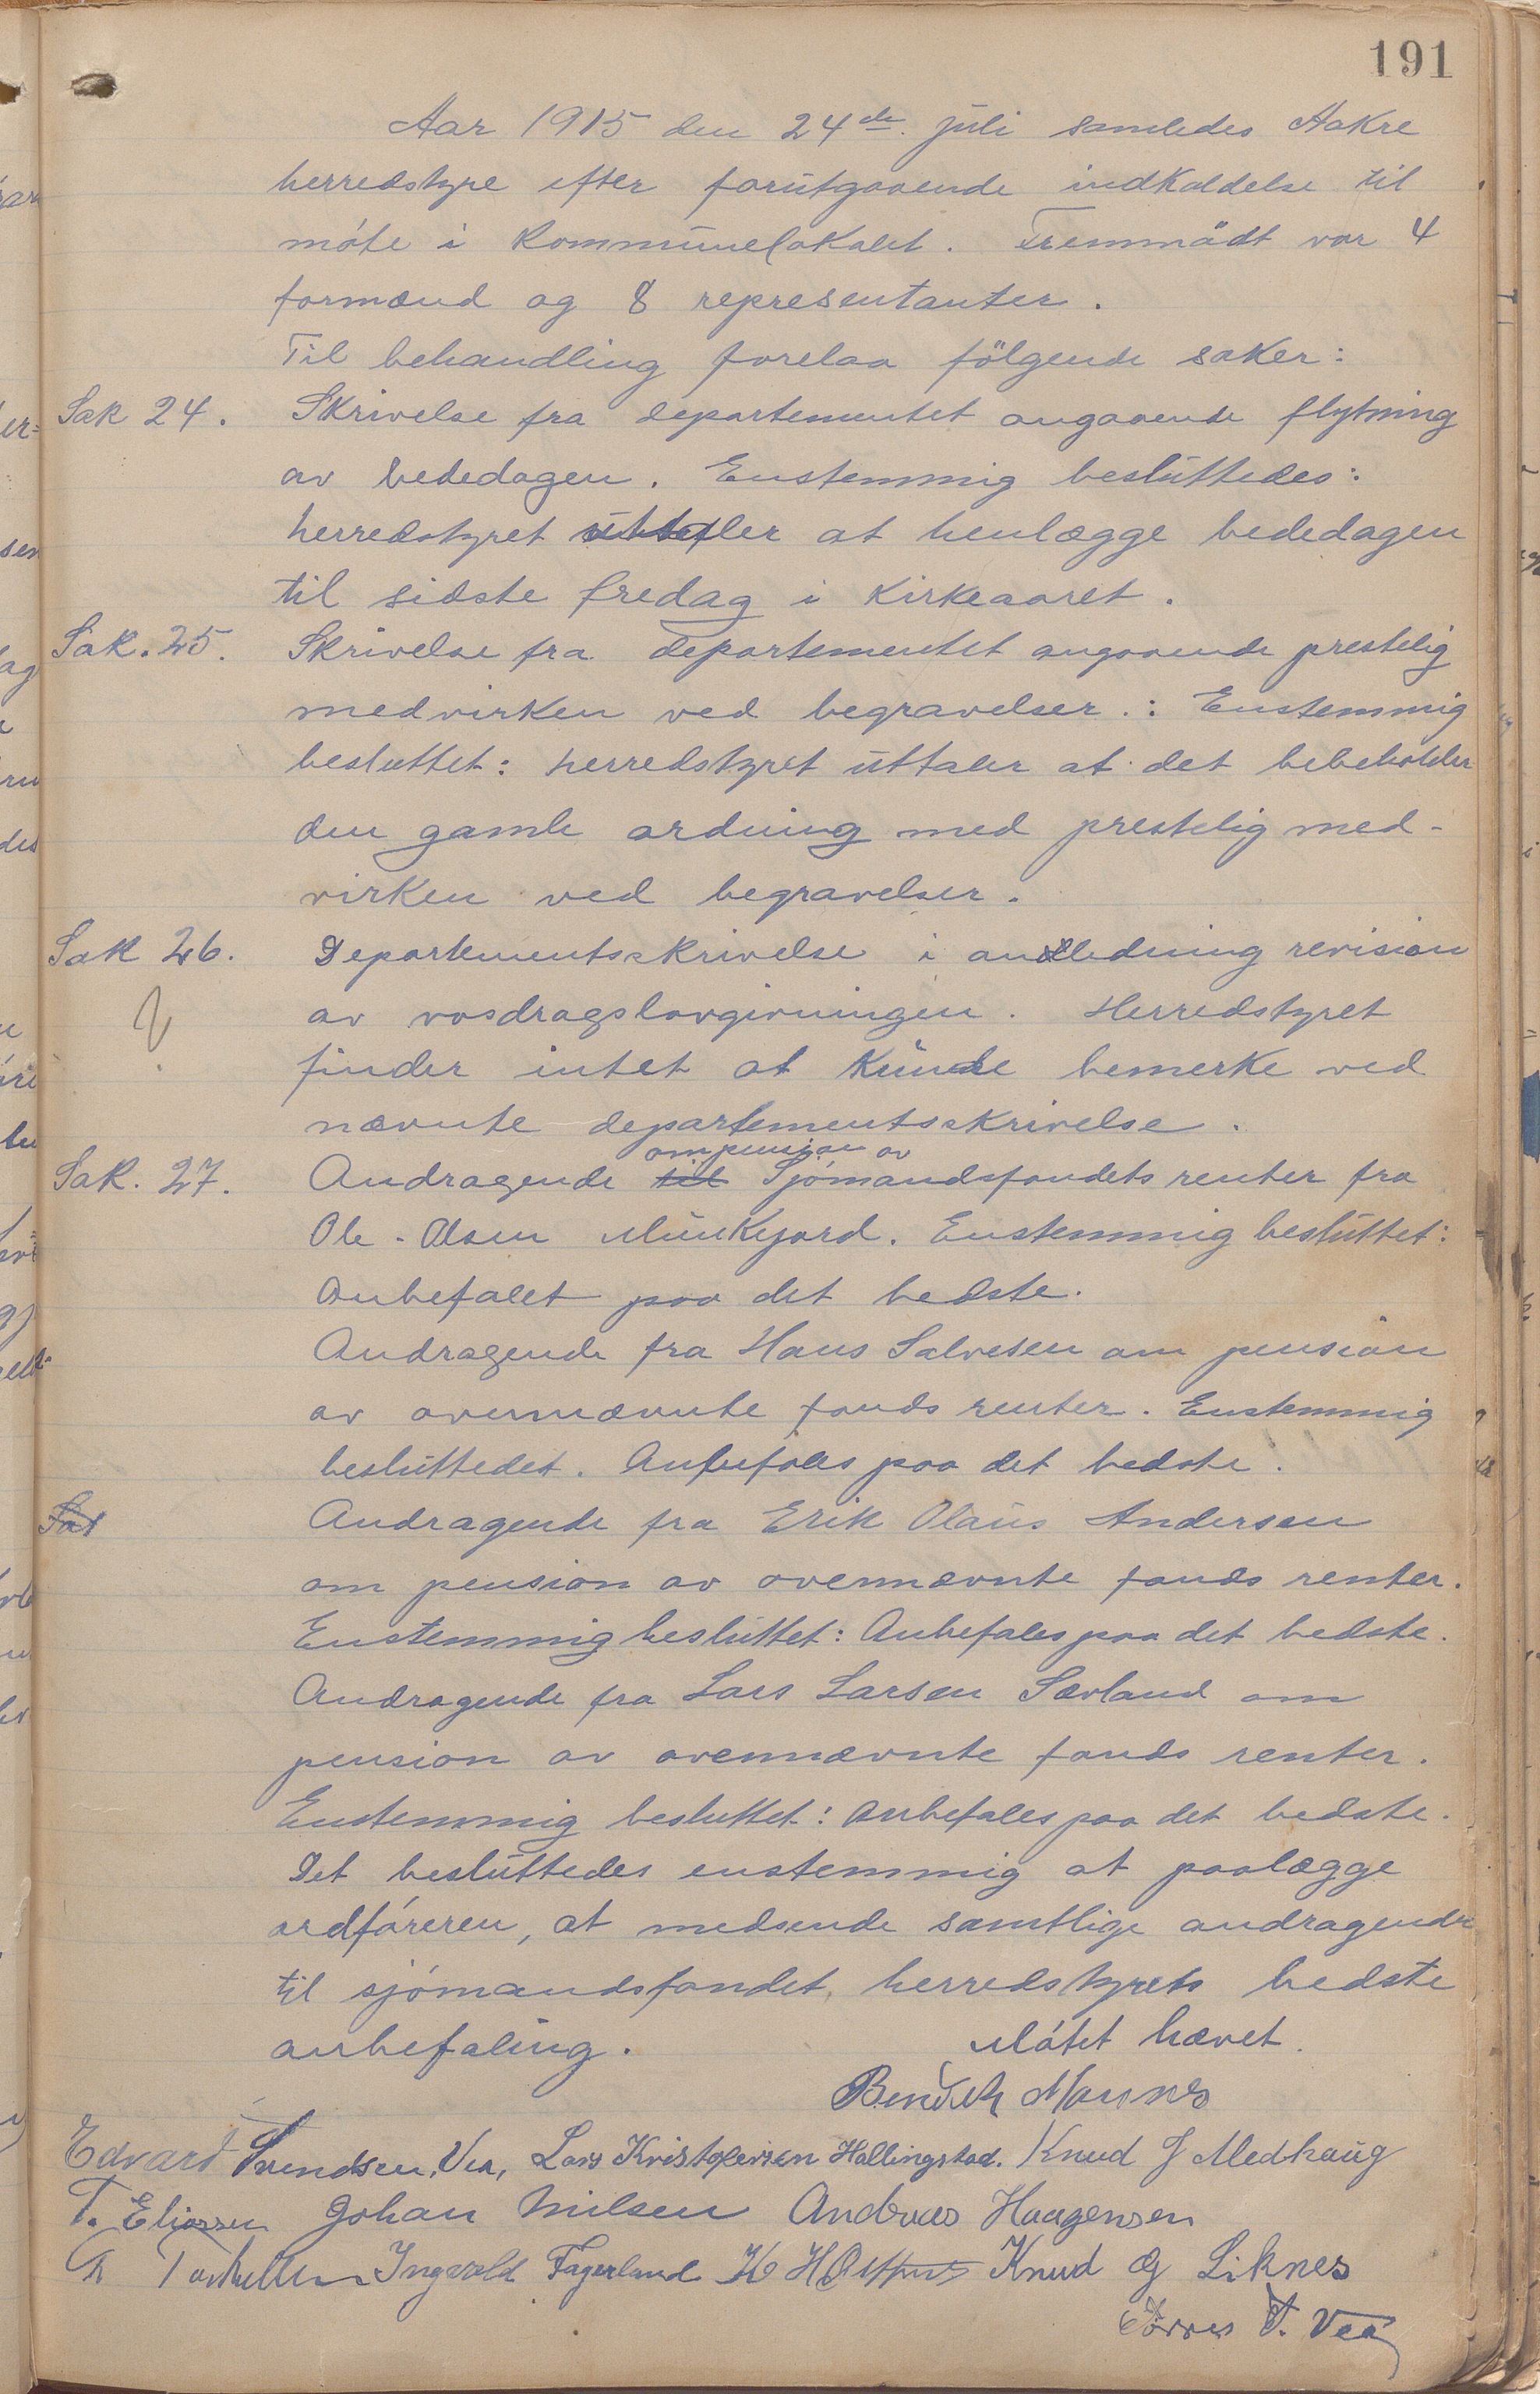 191
Aar 1915 den 24de juli samledes Aakre
herredstyre efter forutgaaende indkaldelse til
møte i kommunelokalet. Fremmödt var 4
formænd og 8 representanter.
Til behandling forelaa fölgende saker:
Sak 24. Skrivelse fra departementet angaaende flytning
av bededagen. Enstemmig besluttedes:
herredstyret uttaler at henlægge bededagen
til sidste fredag i kirkeaaret.
Sak. 25. Skrivelse fra departementet angaaende prestelig
medvirken ved begravelser.: Enstemmig
besluttet: herredstyret uttaler at det bebeholder
den gamle ordning med prestelig med-
virken ved begravelser.
Sak 26. Departementsskrivelse i anledning revision
av vasdragslovgivningen. Herredstyret
finder intet at kunde bemerke ved
nævnte departementsskrivelse.
Sak. 27. Andragende om pension av Sjømandsfondets renter fra
Ole Olsen Munkejord. Enstemmig besluttet:
Anbefalet paa det bedste.
Andragende fra Hans Salvesen om pension
av ovennævnte fonds renter. Enstemmig
besluttedet. Anbefales paa det bedste.
Andragende fra Erik Olaus Andersen
om pension av ovennævnte fonds renter.
Enstemmig besluttet: Anbefales paa det bedste.
Andragende fra Lars Larsen Sævland om
pension av ovennævnte fonds renter.
Enstemmig besluttet: Anbefales paa det bedste.
Det besluttedes enstemmig at paalægge
ordføreren, at medsende samtlige andragende
til sjømandsfondet herredstyrets bedste
anbefaling. Møtet hævet.
Bendik Mannes
Edvard Svendsen, Vea, Lars Kristofersen Hallingstad. Knud J Medhaug
T. Eliassen Johan Nilsen Andreas Haagensen
Ingvald Fagerland K H Knud G Liknes
Tørres T. Vea